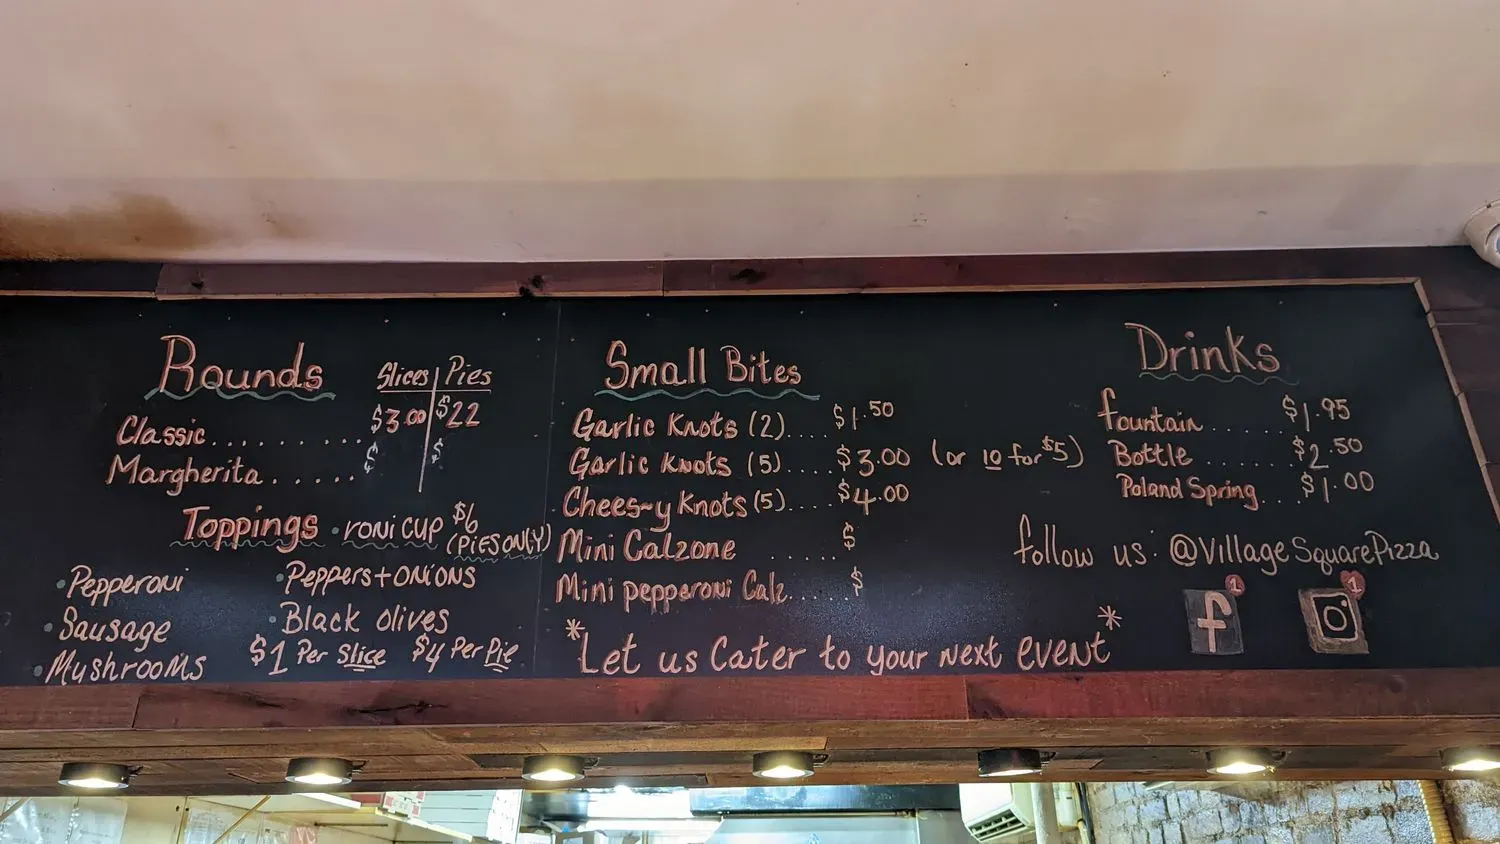 Rounds
Slices Pies
Classic.......... $3.00 $22
Margherita...... $ $
Toppings
• roni cup $6
(Pies only)
• Pepperoni
• Sausage
• Mushrooms
• Peppers + Onions
• Black olives
$1 Per Slice $4 Per Pie
Small Bites
Garlic Knots (2).... $1.50
Garlic Knots (5).... $3.00 (or 10 for $5)
Chees-y Knots (5).... $4.00
Mini Calzone ...... $
Mini pepperoni Calz...... $
*Let us Cater to your Next event*
Drinks
fountain ..... $1.95
Bottle ...... $2.50
Poland Spring... $1.00
follow us: @VillageSquarePizza
f
1
1